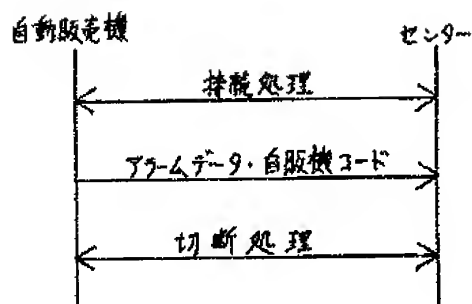 自動販売機
センター
接続処理
アラームデータ・自販機コード
切断処理